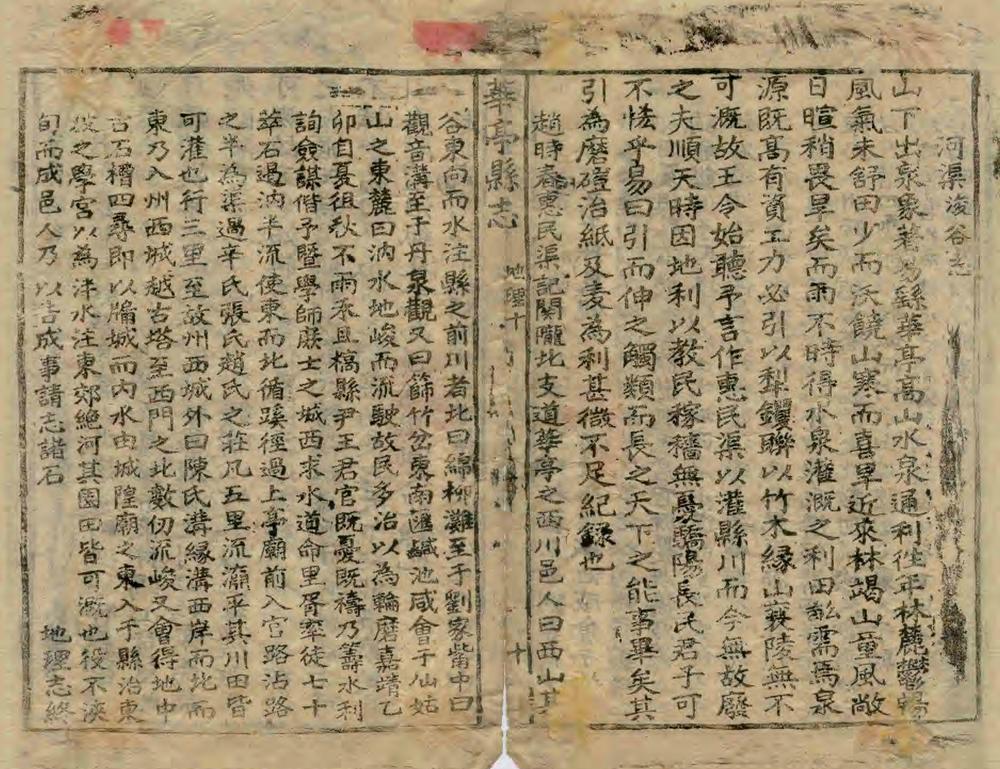 河渠浚谷志
山下出泉象著易繇華亭高山水泉通利往年林麓鬱
風氣未舒田少而沃饒山寒而喜旱近來林竭山童風敞
日暄稍畏旱矣而雨不時得水泉灌溉之利田能需焉泉
源既高有資工力必引以犁钁聯以竹木緣山襄陵無不
可溉故王令始聽予言作惠民渠以灌縣川而今無故廢
之夫順天時因地利以教民稼穡無憂驕陽長民君子可
不恠乎易曰引而伸之觸類而長之天下之能事畢矣其
引為磨磑治紙及麦為利甚微不足紀録也
趙時春惠民渠記関隴北支道華亭之西川邑人曰西山其
華亭縣志
地理十
十
谷東向而水注縣之前川者北曰綿柳灘至于劉家嘴中曰
觀音溝至于丹泉觀又曰篩竹岔東南匯鹹池咸會于仙姑
山之東麓曰汭水地峻而流駛故民多治以為輪磨嘉靖乙
卯自夏徂秋不雨禾且槁縣尹王君官既憂既禱乃籌水利
詢僉謀偕予暨學師庶士之城西求水道命里胥率徒七十
萃石遏汭半流使東而北循蹊徑過上亭廟前入官路沾路
之半為渠過辛氏張氏趙氏之莊凡五里流瀛平其川田皆
可灌也行三里至故州西城外曰陳氏溝緣溝西岸而北而
東乃入州西城越古塔至西門之北數仞流峻又會得地中
古石槽四尋即以牖城而內水由城隍廟之東入于縣治東
披之學宮以為泮水注東郊絕河其園田皆可溉也役不浹
旬而成邑人乃以告成事請志諸石
地理志終